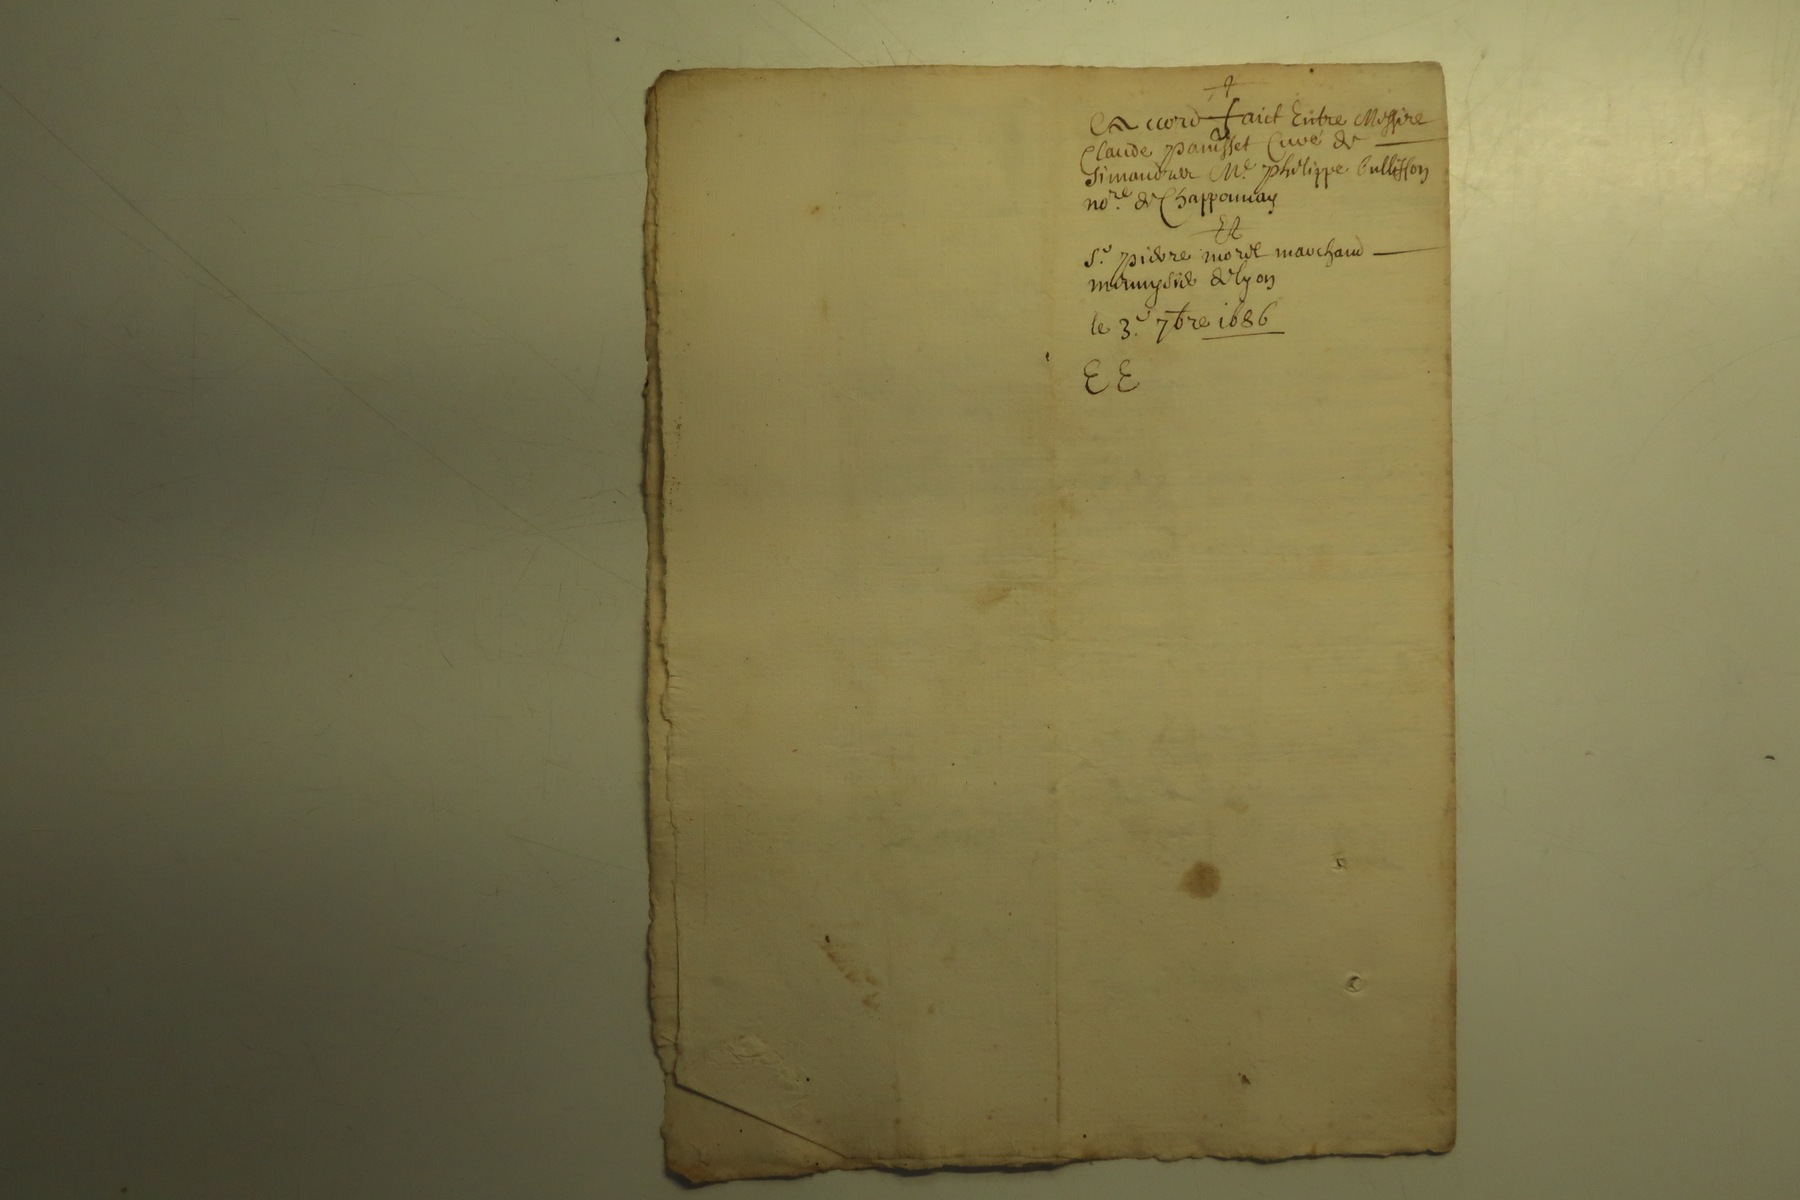 ✝
Accord faict Entre Messire
Claude pansset Curé de
Simandres Me. philippe bullisson
nore. de Chapponnay
Et
Sr. pierre morel marchand
de lyon
le 3e. 7bre 1686
EE